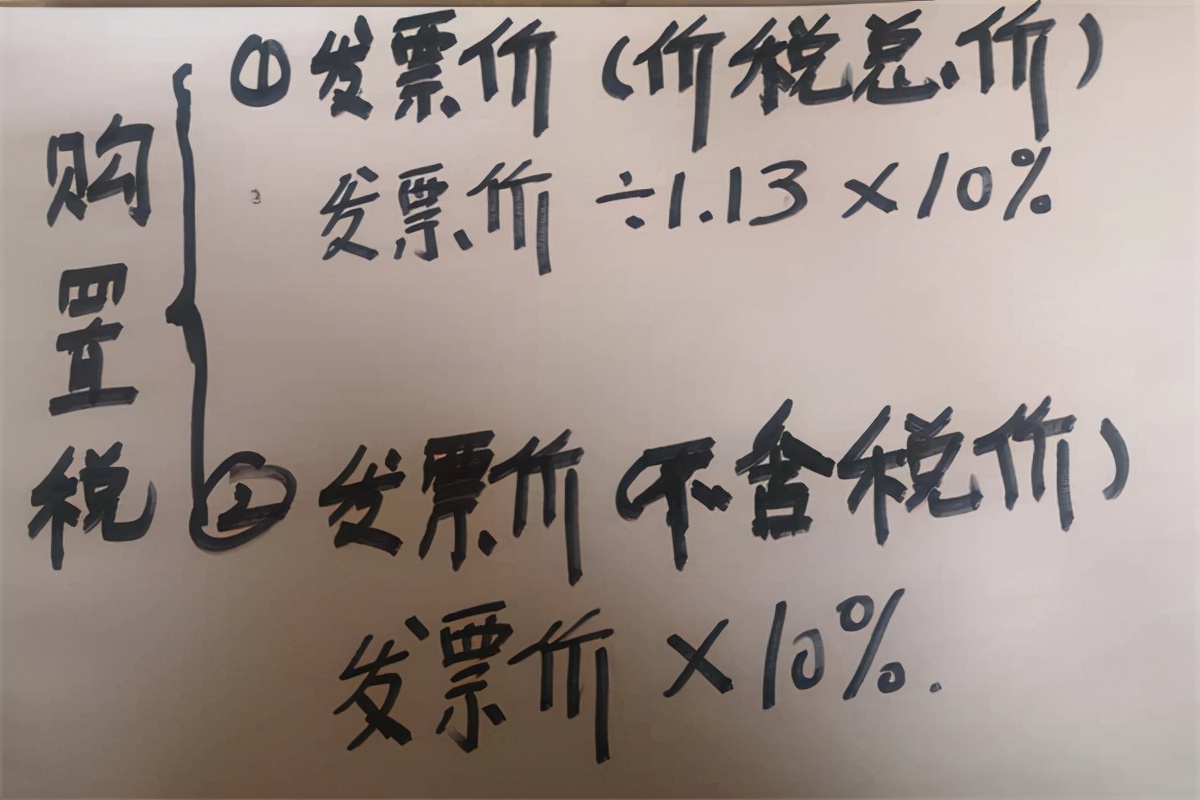 购置税
①发票价（价税总价）
发票价÷1.13×10%
②发票价（不含税价）
发票价×10%.